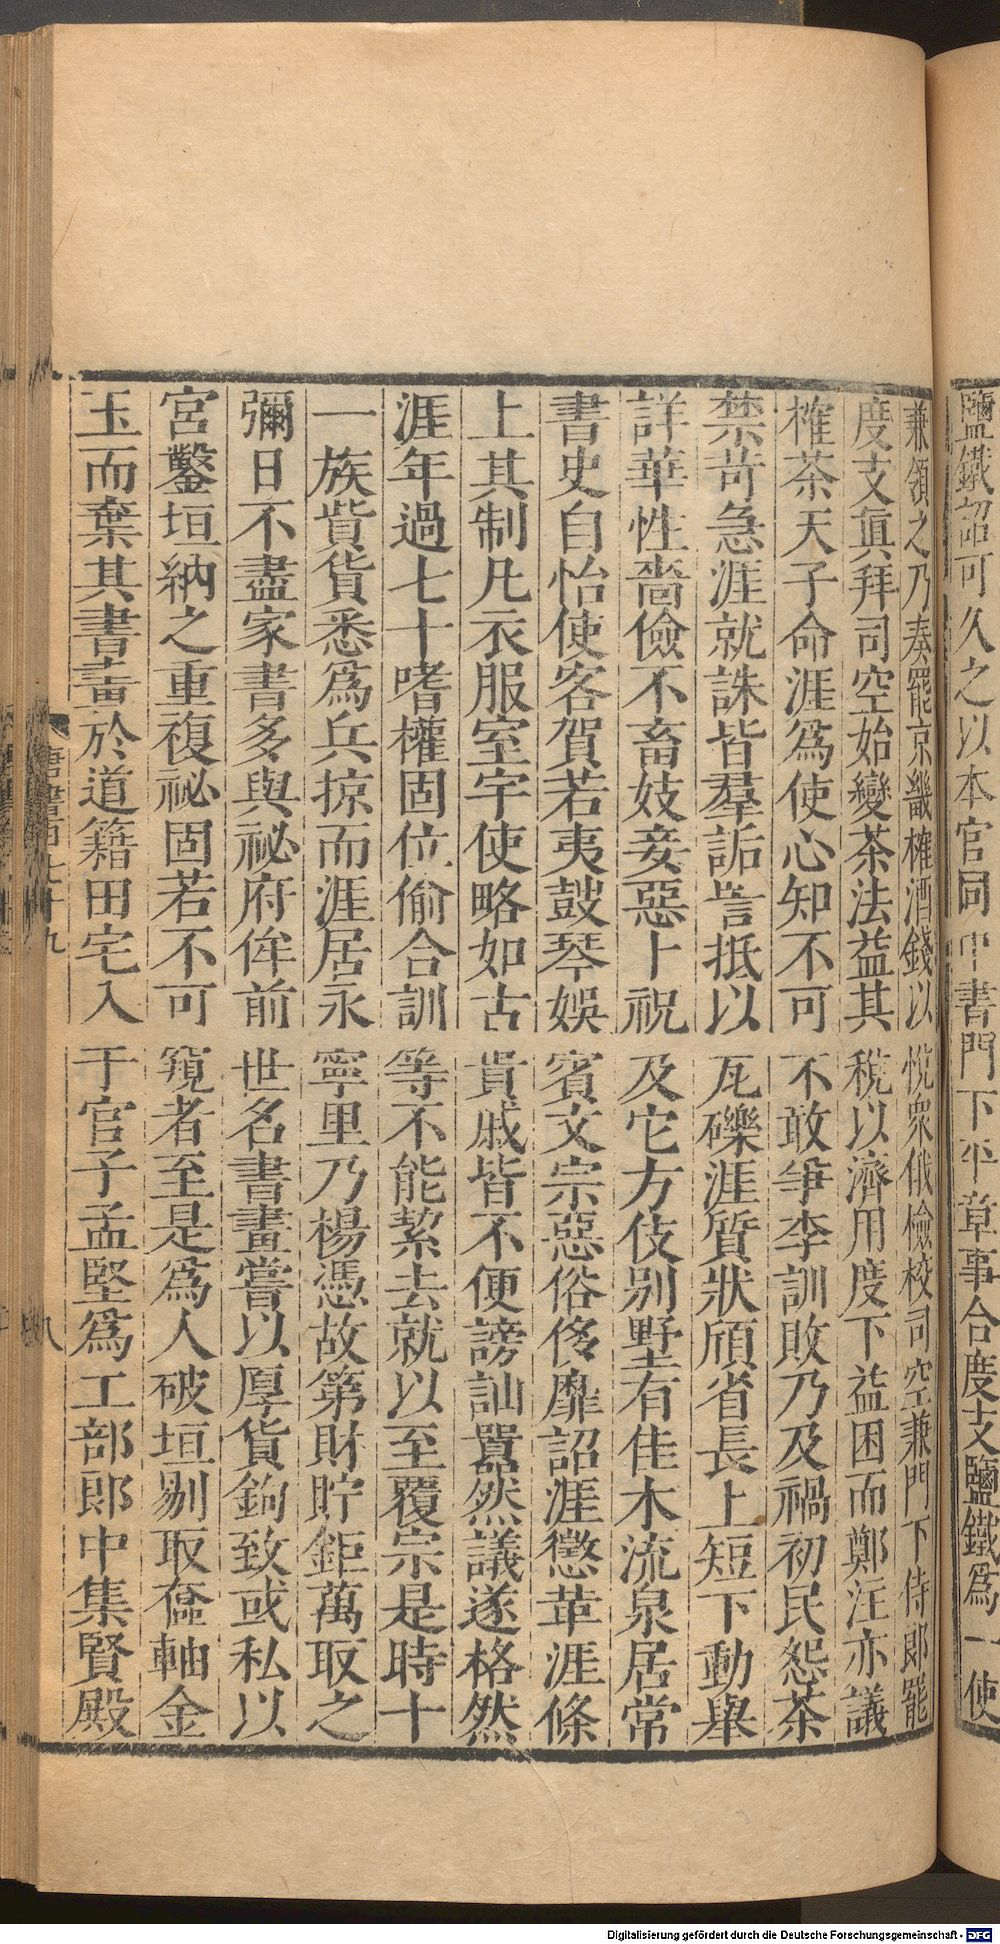 鹽鐵詔可久之以本官同中書門下平章事合度支鹽鐵爲一使
兼領之乃奏罷京畿榷酒錢以悅衆俄檢校司空兼門下侍郎罷
度支眞拜司空始變茶法益其稅以濟用度下益困而鄭汪亦議
榷茶天子命涯爲使心知不可不敢爭李訓敗乃及禍初民怨茶
禁苛急涯就誅皆羣詬詈抵以瓦礫涯質狀頎省長上短下動舉
詳華性嗇儉不畜妓妾惡卜祝及它方伎別墅有佳木流泉居常
書史自怡使客賀若夷鼓琴娛賓文宗惡俗侈靡詔涯懲革涯條
上其制凡衣服室宇使略如古貴戚皆不便謗訕囂然議遂格然
涯年過七十嗜權固位偷合訓等不能絜去就以至覆宗是時十
一族貲貨悉爲兵掠而涯居永寧里乃楊憑故第財貯鉅萬取之
彌日不盡家書多與祕府侔前世名書畫嘗以厚貨鉤致或私以
宮鑿垣納之重複祕固若不可窺者至是爲人破垣剔取奩軸金
玉而棄其書畫於道籍田宅入于官子孟堅爲工部郎中集賢殿
唐書百七十九
八
Digitalisierung gefördert durch die Deutsche Forschungsgemeinschaft - DFG